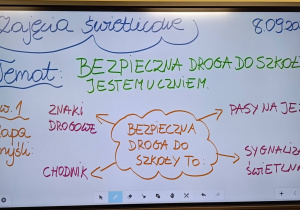 Zajęcia świetlicowe 8.09.20
Temat: BEZPIECZNA DROGA DO SZKOŁ
JESTEM UCZNIEM.
ZNAKI
DROGOWE
PASY NA JE
w. 1
apa
myśli:
BEZPIECZNA
DROGA DO
SZKOŁY TO:
CHODNIK
SYGNALIZA
ŚWIETLNA